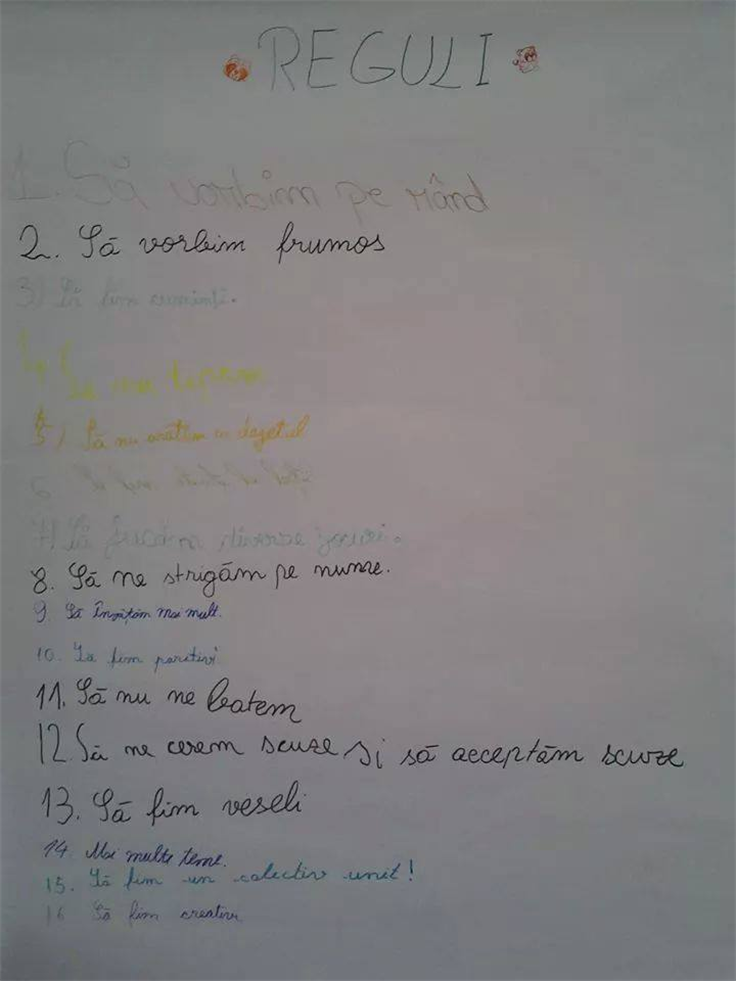 REGULI
1. Să vorbim pe rând
2. Să vorbim frumos
3) Să fim cuminți.
4. Să nu țipăm
5) Să nu arătăm cu degetul
6
7) Să jucăm diverse jocuri.
8. Să ne strigăm pe nume.
9. Să învățăm mai mult.
10. Să fim pozitivi
11. Să nu ne batem
12. Să ne cerem scuze și să acceptăm scuze
13. Să fim veseli
14. Mai multe teme.
15. Să fim un colectiv unit!
16 Să fim creativi